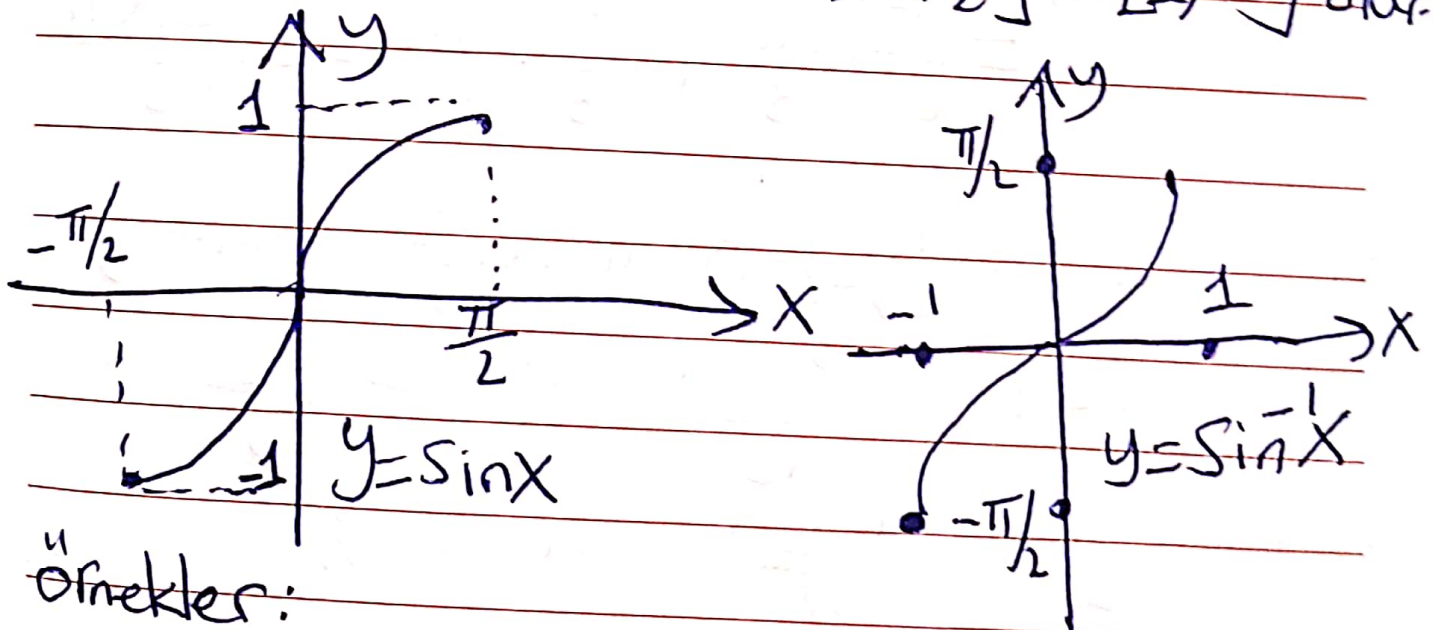 olur.
y
1
-π/2
π/2
X
-1
y=sinX
y
π/2
-1
1
X
y=Sin⁻¹X
-π/2
Örnekler: